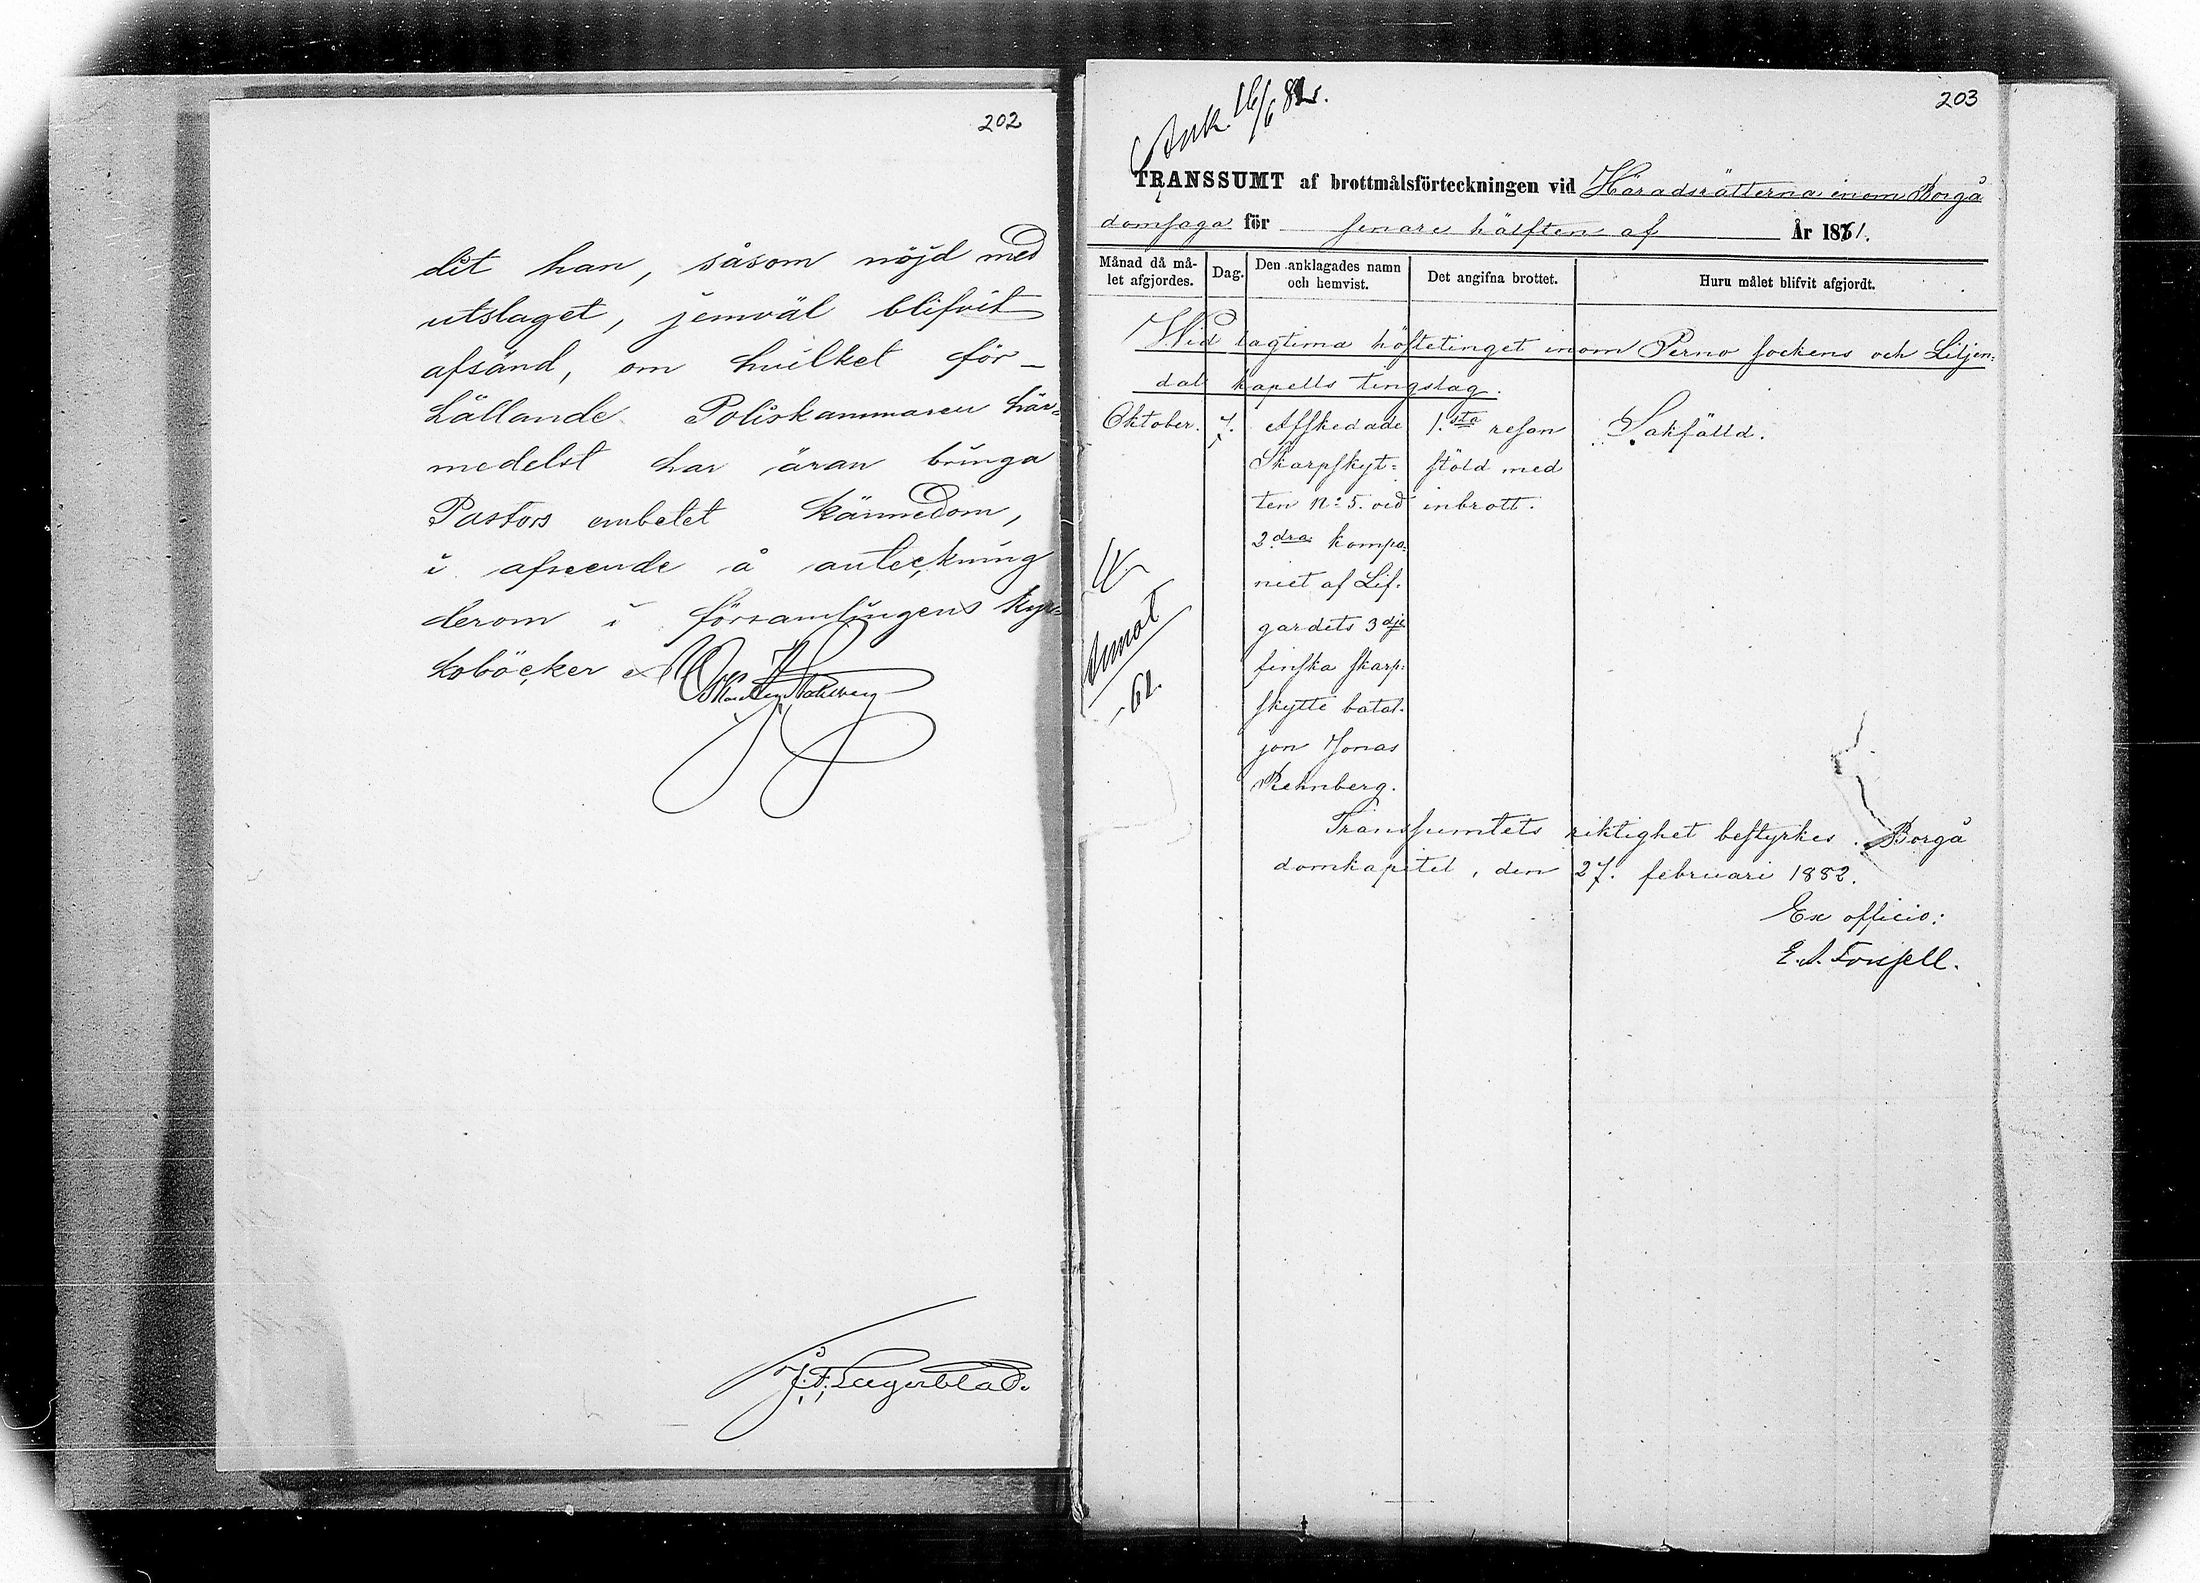 202
dit han, såsom nöjd med
utslaget, jemväl blifvit
afsänd, om hvilket för-
hållande Poliskammaren här-
medelst har äran bringa
Pastors embetet kännedom,
i afseende å anteckning
derom i församlingens kyr-
koböcker
J. F. Lagerblad.
203
Ank. 16/6 82.
TRANSSUMT af brottmålsförteckningen vid Häradsrätterna inom Borgå
domsaga för senare hälften af År 1881.
Månad då må-
let afgjordes.
Dag.
Den anklagades namn
och hemvist.
Det angifna brottet.
Huru målet blifvit afgjordt.
Wid lagtima höstetinget inom Perno sockens och Liljen=
dals kapells tingslag.
Oktober. 7. Afskedade 1.sta resan Sakfälld.
Skarpskyt= stöld med
ten No 5. vid inbrott.
2dra kompa=
niet af Lif-
gardets 3dje
finska skarp=
skytte batal-
jon Jonas
Rehnberg.
Annot
62.
Transsumtets riktighet bestyrkes. Borgå
domkapitel, den 27. februari 1882.
Ex officio: